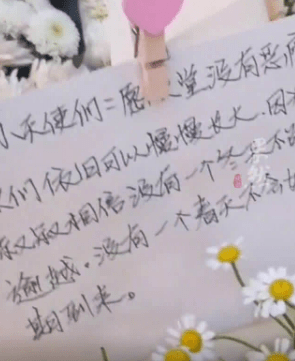 小天使们：愿 堂没有恶
们依旧可以慢慢长大.因
叔叔相信没有一个冬天不
逾越.没有一个春天不会
如期到来。